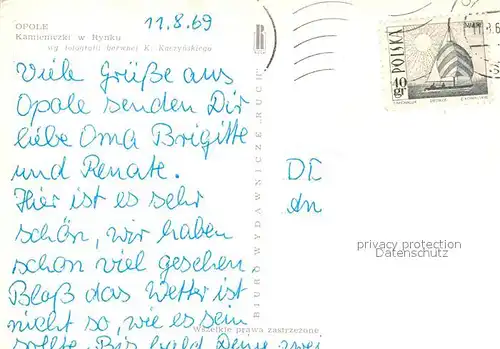 OPOLE
11.8.69
Kamieniczki w Rynku
wg fotografii barwnej K. Kaszyńskiego
Viele Grüße aus
Opole senden Dir
liebe Oma Brigitte
und Renate.
Hier ist es sehr
schön, wir haben
schon viel gesehen.
Bloß das Wetter ist
nicht so, wie es sein
sollte. Bis bald Deine zwei
Wszelkie prawa zastrzeżone
BIURO WYDAWNICZE RUCH
POLSKA
40 gr
11.8.6
DD
An
privacy protection
Datenschutz